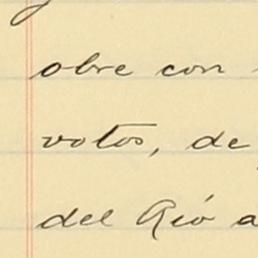 obre con
votos, de
del Rió a